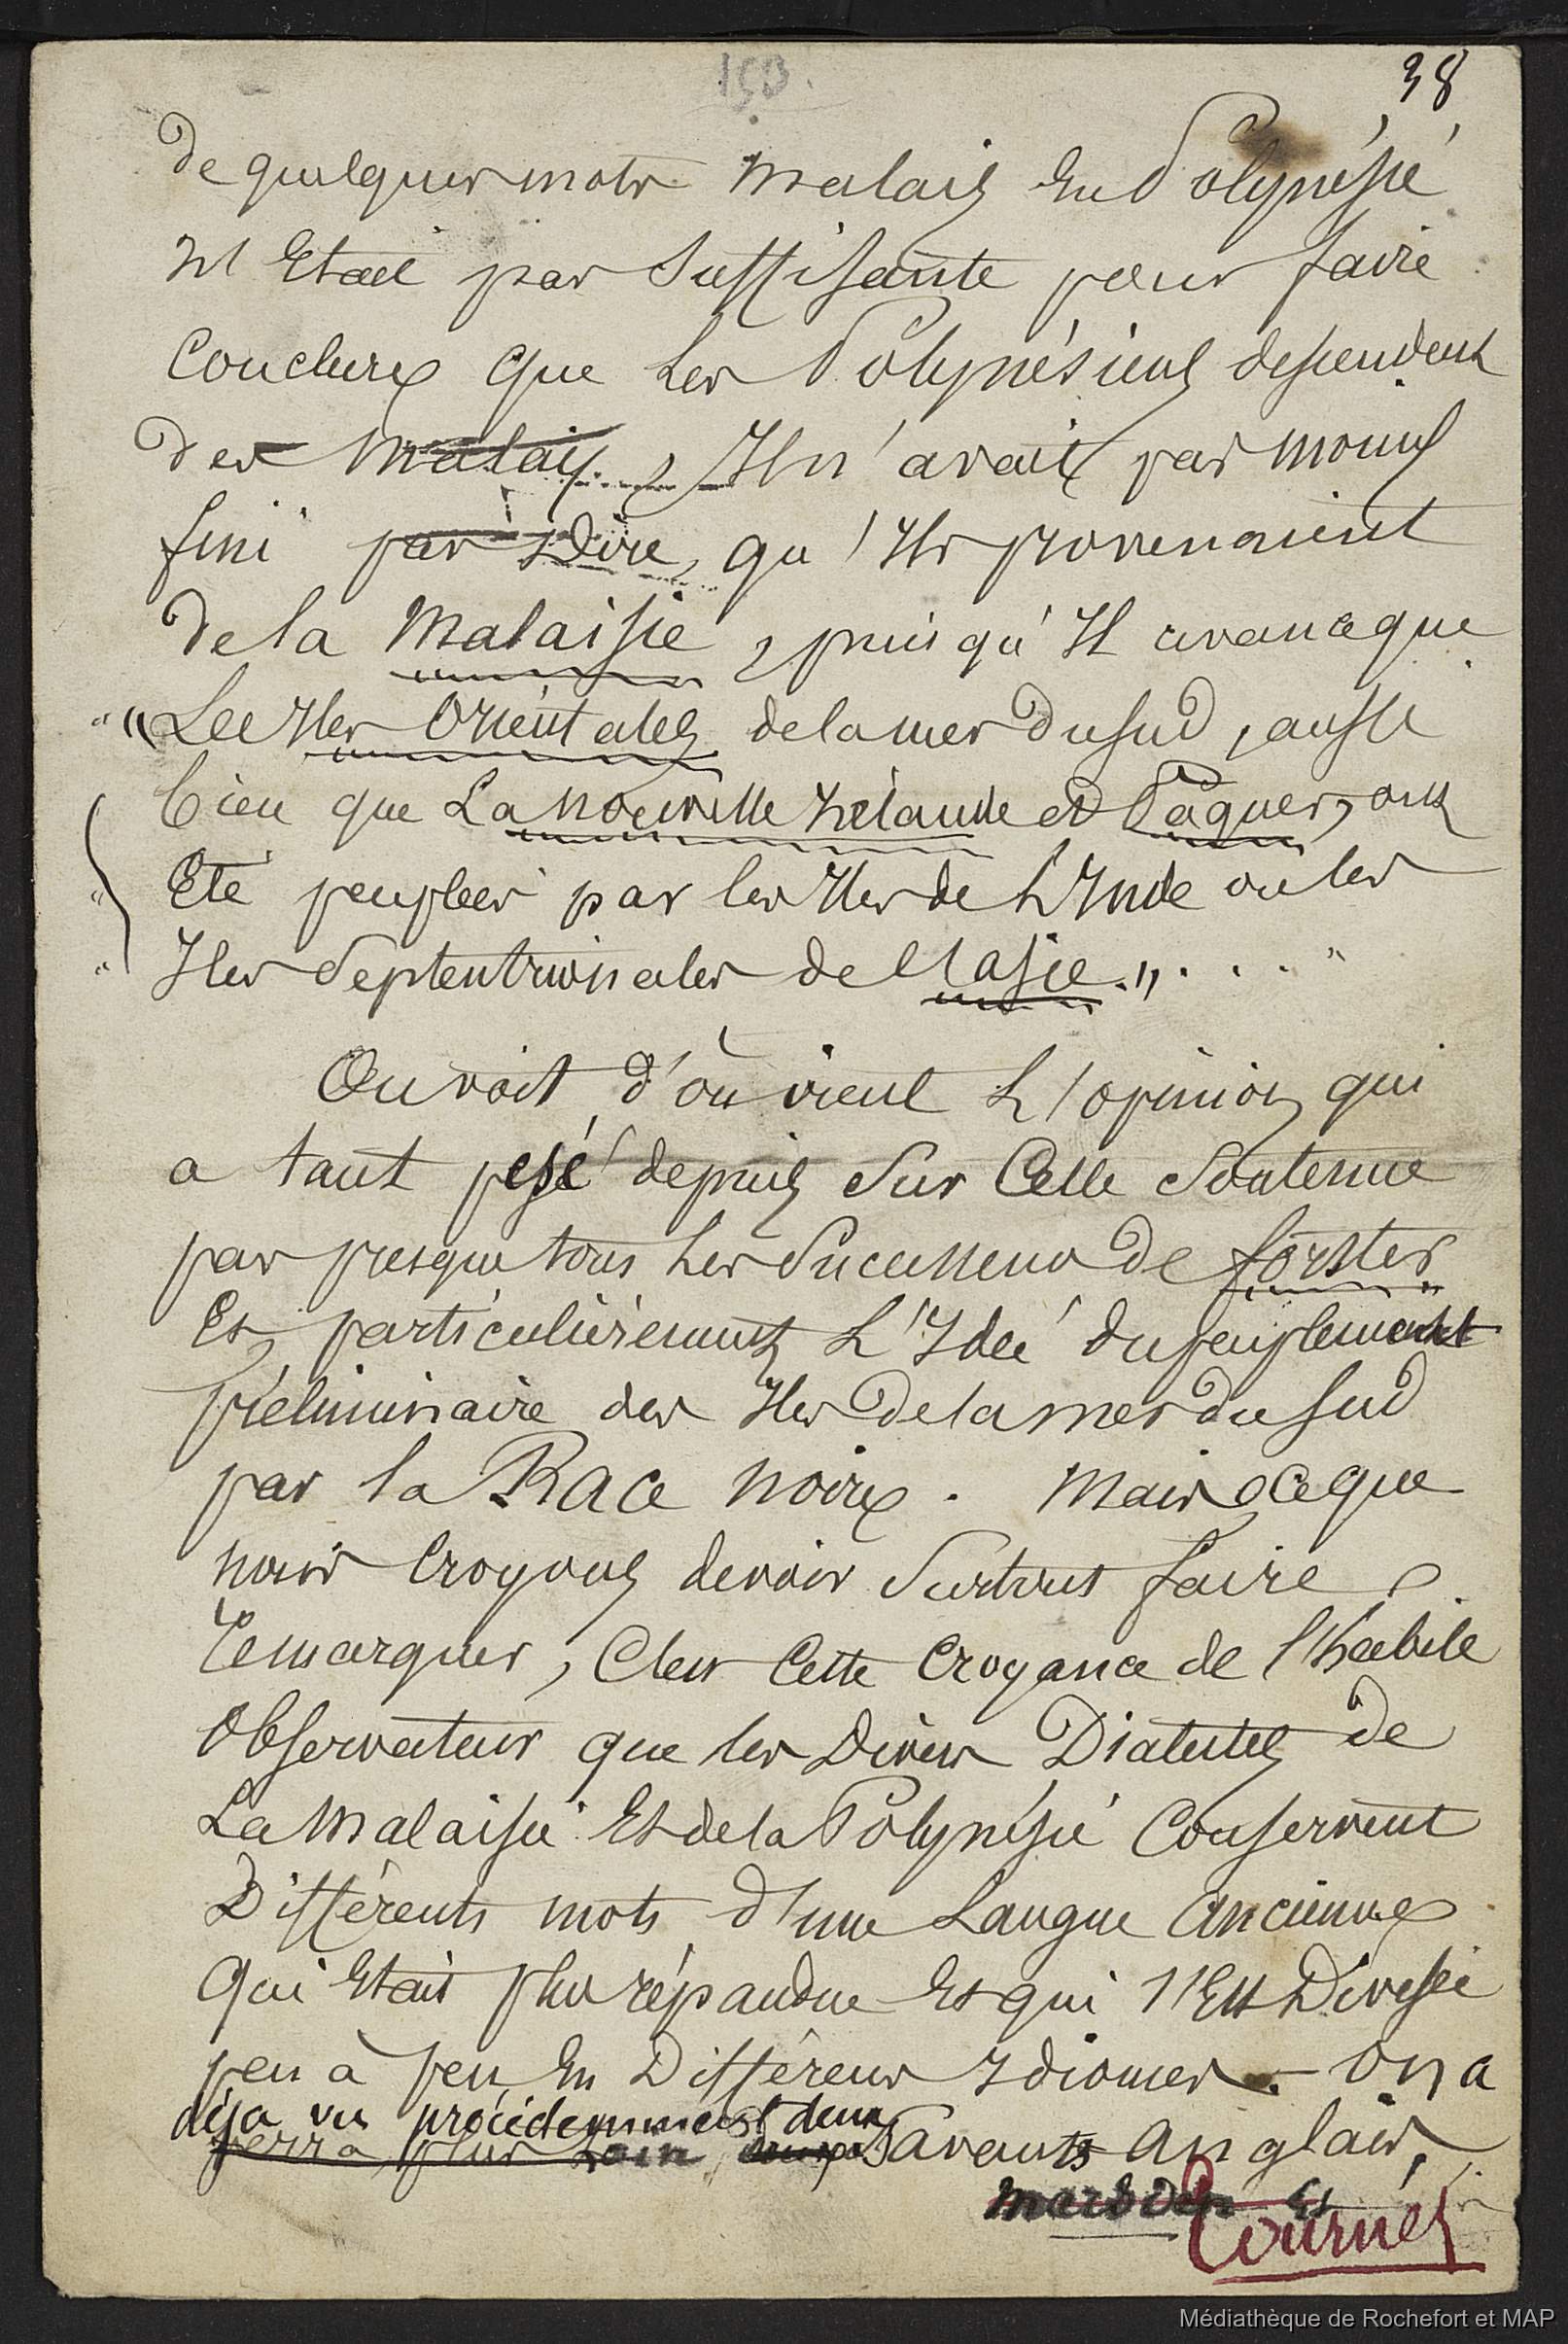 153.
38
de quelques mots malais En Polynésie
N'Etait pas Suffisante pour faire
Conclure que Les Polynésiens descendent
des Malais, Il n'avait pas moins
fini par Dire, qu'Ils provenaient
de la Malaisie, puisqu'Il avance que
"Les Iles Orientales de la mer Du Sud, aussi
bien que La Nouvelle Zélande et Pâques, ont
Eté peuplées par les Iles de L'Inde ou les
Iles Septentrionales de l'Asie." . . . "
On voit d'où vient L'opinion qui
a tant pesé depuis Sur Celle Soutenue
par presque tous Les Successeurs de forster
Et particulièrement L'Idée du peuplement
préliminaire des Iles De la mer du Sud
par la Race noire. Mais ce que
nous Croyons devoir Surtout faire
remarquer, C'est Cette Croyance de l'habile
Observateur que les Divers Dialectes de
La Malaisie Et de la Polynésie Conservent
Différents mots d'une Langue ancienne
Qui Etait plus répandue Et qui s'Est Divisée
peu à peu En Différens Idiomes. - On a
déjà vu précédemment deux
verra plus Loin Savants Anglais,
Marsden Et
Tournez
Médiathèque de Rochefort et MAP